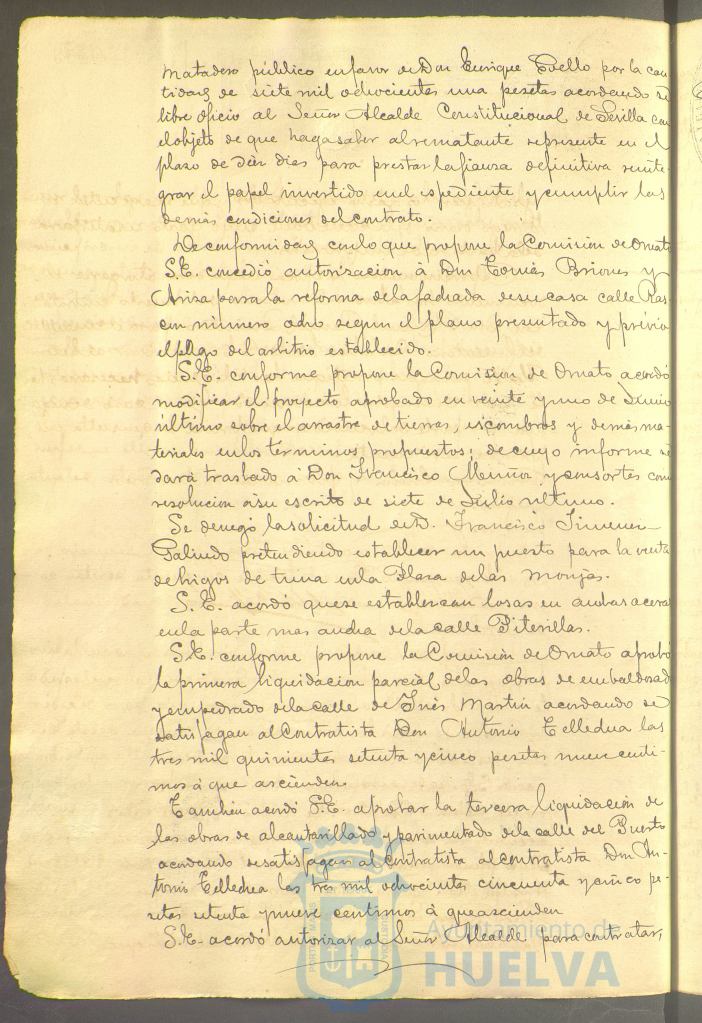 matadero público en favor de Don Enrique Coello por la can
tidad de siete mil ochocientas una pesetas acordando se
libre oficio al Señor Alcalde Constitucional de Sevilla con
el objeto de que haga saber al rematante represente en el
plazo de diez dias para prestar la fianza definitiva reinte-
grar el papel invertido en el espediente y cumplir las
demás condiciones del contrato.
De conformidad con lo que propone la Comisión de Ornato
S.E. concedió autorizacion á Don Tomás Briones y
Ariza para la reforma de la fachada de su casa calle Ras
con número ocho segun el plano presentado y prévio
el pago del arbitrio establecido.
S.E. conforme propone la Comision de Ornato acordó
modificar el proyecto aprobado en veinte y uno de Junio
último sobre el arrastre de tierras, escombros y demás ma
teriales en los términos propuestos; de cuyo informe se
dará traslado á Don Francisco Muñoz y consortes como
resolucion á su escrito de siete de Julio último.
Se denegó la solicitud de D. Francisco Jimenez
Galindo pretendiendo establecer un puesto para la venta
de higos de tuna en la Plaza de las Monjas.
S.E. acordó que se establezcan losas en ambas aceras
en la parte mas ancha de la calle Piterillas.
S.E. conforme propone la Comisión de Ornato aprobó
la primera liquidación parcial de las obras de embaldosado
y empedrado de la calle de Inés Martin acordando se
satisfagan al Contratista Don Antonio Tellechea las
tres mil quinientas setenta y cinco pesetas nueve centi-
mos á que ascienden.
Tambien acordó S.E. aprobar la tercera liquidación de
las obras de alcantarillado y pavimentado de la calle del Puerto
acordando se satisfagan al Contratista al contratista Don An-
tonio Tellechea las tres mil ochocientas cincuenta y cinco pe-
setas setenta y nueve centimos á que ascienden
S.E. acordó autorizar al Señor Alcalde para contratar,
Ayuntamiento de
HUELVA